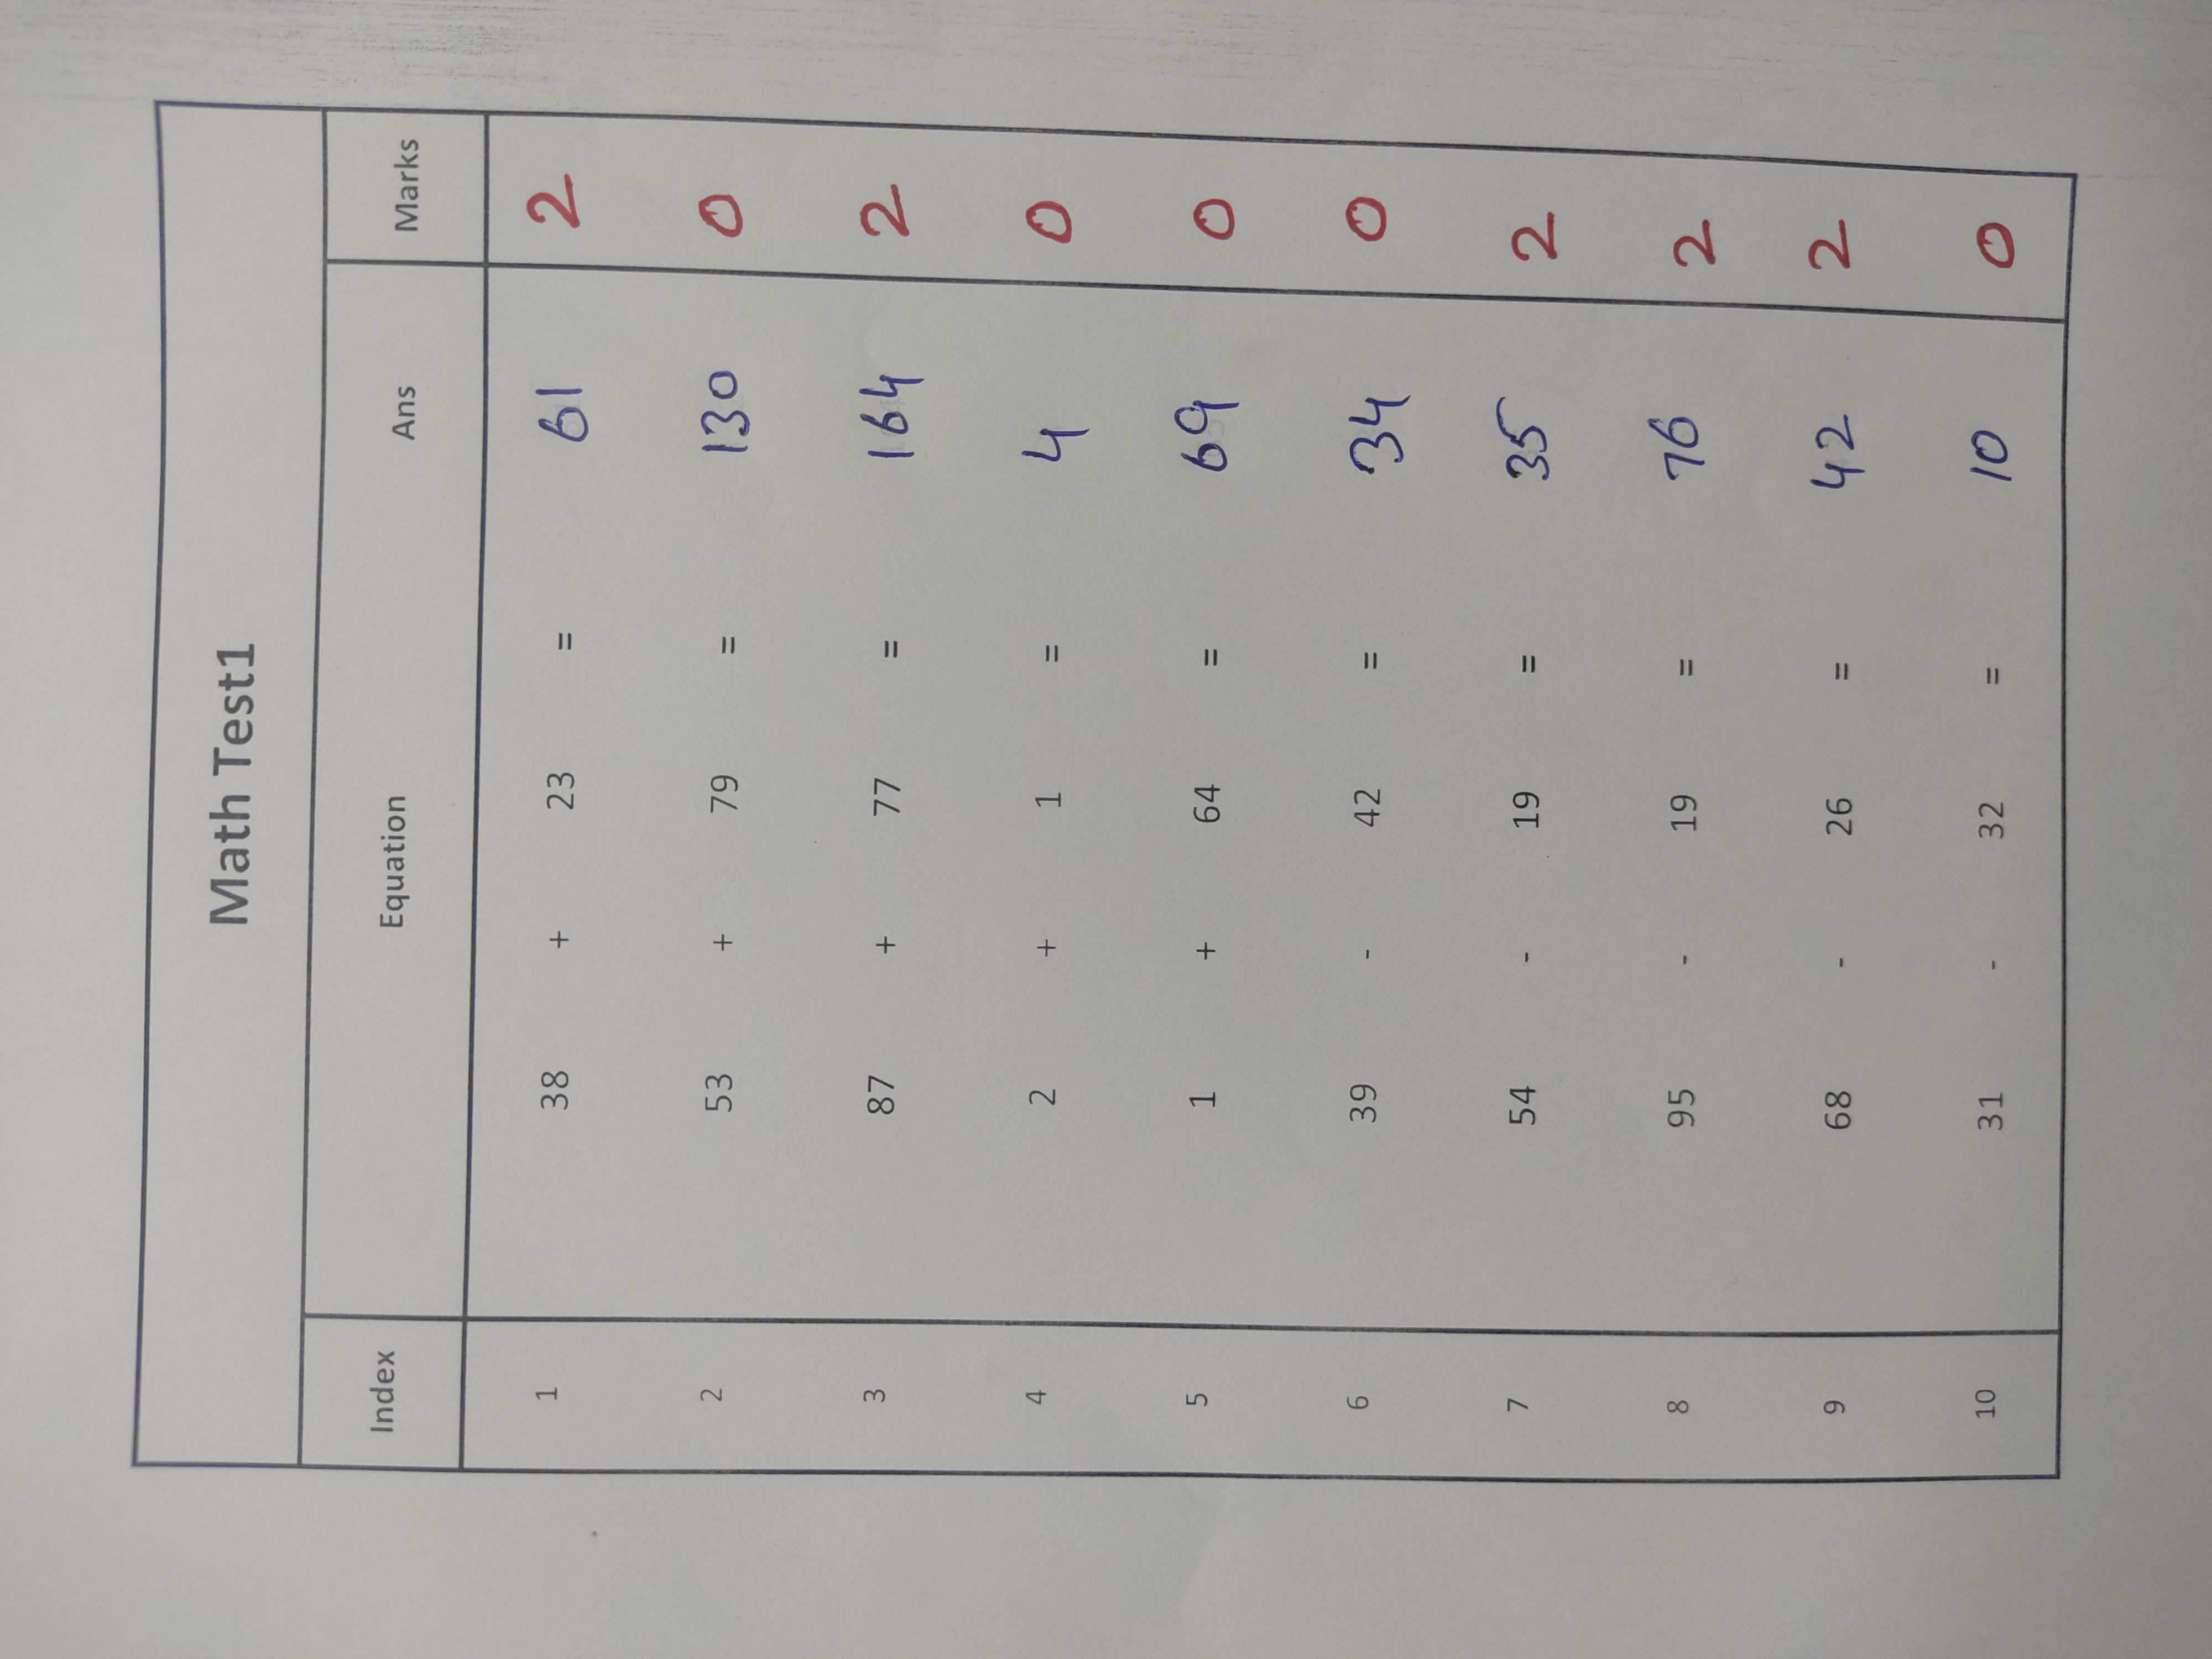 Math Test1
Index Equation Ans Marks
1 38 + 23 = 61 2
2 53 + 79 = 130 0
3 87 + 77 = 164 2
4 2 + 1 = 4 0
5 1 + 64 = 69 0
6 39 - 42 = 34 0
7 54 - 19 = 35 2
8 95 - 19 = 76 2
9 68 - 26 = 42 2
10 31 - 32 = 10 0